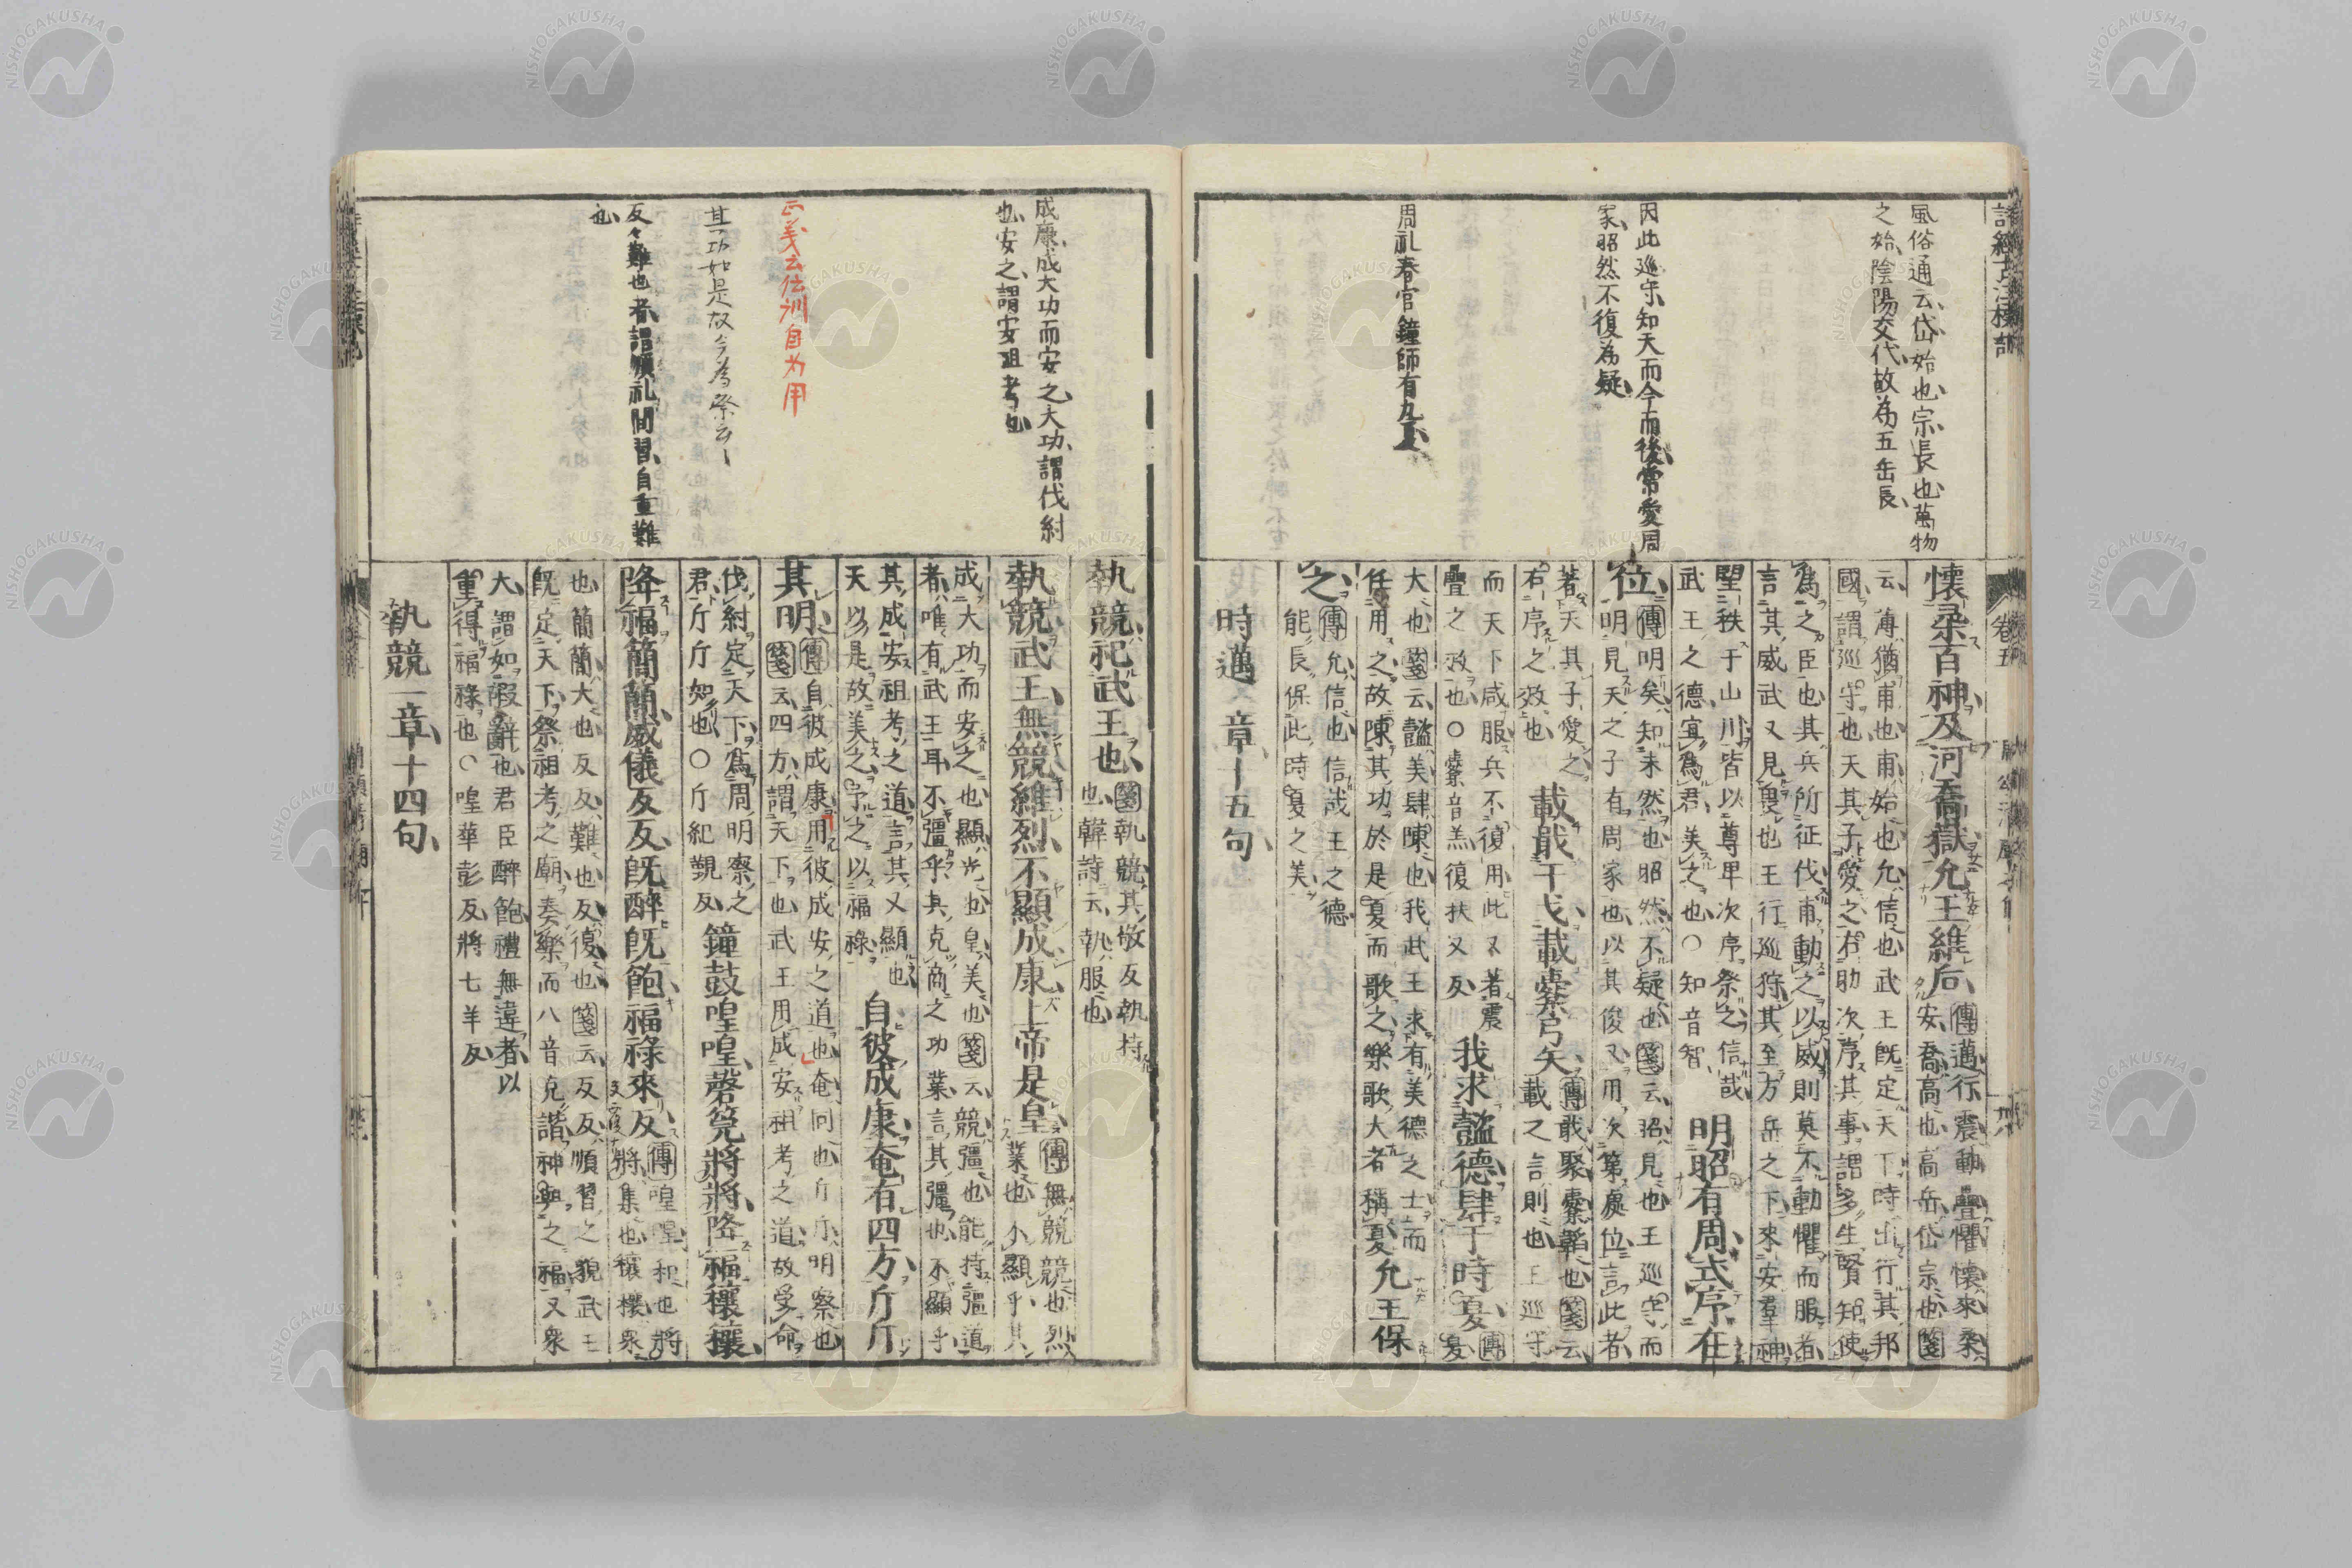 風俗通云岱始也宗長也萬物
之始陰陽交代故為五岳長
因此巡守知天而今而後常愛周
家昭然不復為疑
周礼春官鐘師有九夏
懷柔百神及河喬嶽允王維后
傳邁行震動疊懼懷來柔
安喬高也高岳岱宗也箋
云薄猶甫也甫始也允信也武王既定天下時出行其邦
國謂巡守也天其子愛之右助次序其事謂多生賢知使
為之臣也其兵所征伐甫動之以威則莫不動懼而服者
言其威武又見畏也王行巡狩其至方岳之下來安羣神
望秩于山川皆以尊卑次序祭之信哉
武王之德宜為君美之也○知音智
明昭有周式序在
位
傳明矣知未然也昭然不疑也箋云昭見也王巡守而
明見天之子有周家也以其俊乂用次第處位言此者
著天其子愛之
右序之效也
載戢干戈載櫜弓矢
傳戢聚櫜韜也箋云
載之言則也王巡守
而天下咸服兵不復用此又著震
疊之效也○櫜音羔復扶又反
我求懿德肆于時夏
傳
夏
大也箋云懿美肆陳也我武王求有美德之士而
任用之故陳其功於是夏而歌之樂歌大者稱夏
允王保
之
傳允信也信哉王之德
能長保此時夏之美
時邁一章十五句
成康成大功而安之大功謂伐紂
也安之謂安祖考也
正義云伝訓自為用
其功如是故今為祭云
反々難也者謂順礼閑習自重難
也
執競祀武王也
箋執競其敬反執持
也韓詩云執服也
執競武王無競維烈不顯成康上帝是皇
傳無競競也烈
業也不顯乎其
成大功而安之也顯光也皇美也箋云競彊也能持彊道
者唯有武王耳不彊乎其克商之功業言其彊也不顯乎
其成安祖考之道言其又顯也
天以是故美之予之以福祿
自彼成康奄有四方斤斤
其明
傳自彼成康用彼成安之道也奄同也斤斤明察也
箋云四方謂天下也武王用成安祖考之道故受命
伐紂定天下為周明察之
君斤斤如也○斤紀覲反
鐘鼓喤喤磬筦將將降福穰穰
降福簡簡威儀反反既醉既飽福祿來反
傳喤喤和也將
將集也穰穰衆
也簡簡大也反反難也反復也箋云反反順習之貌武王
既定天下祭祖考之廟奏樂而八音克諧神與之福又衆
大謂如嘏辭也君臣醉飽禮無違者以
重得福祿也○喤華彭反將七羊反
執競一章十四句